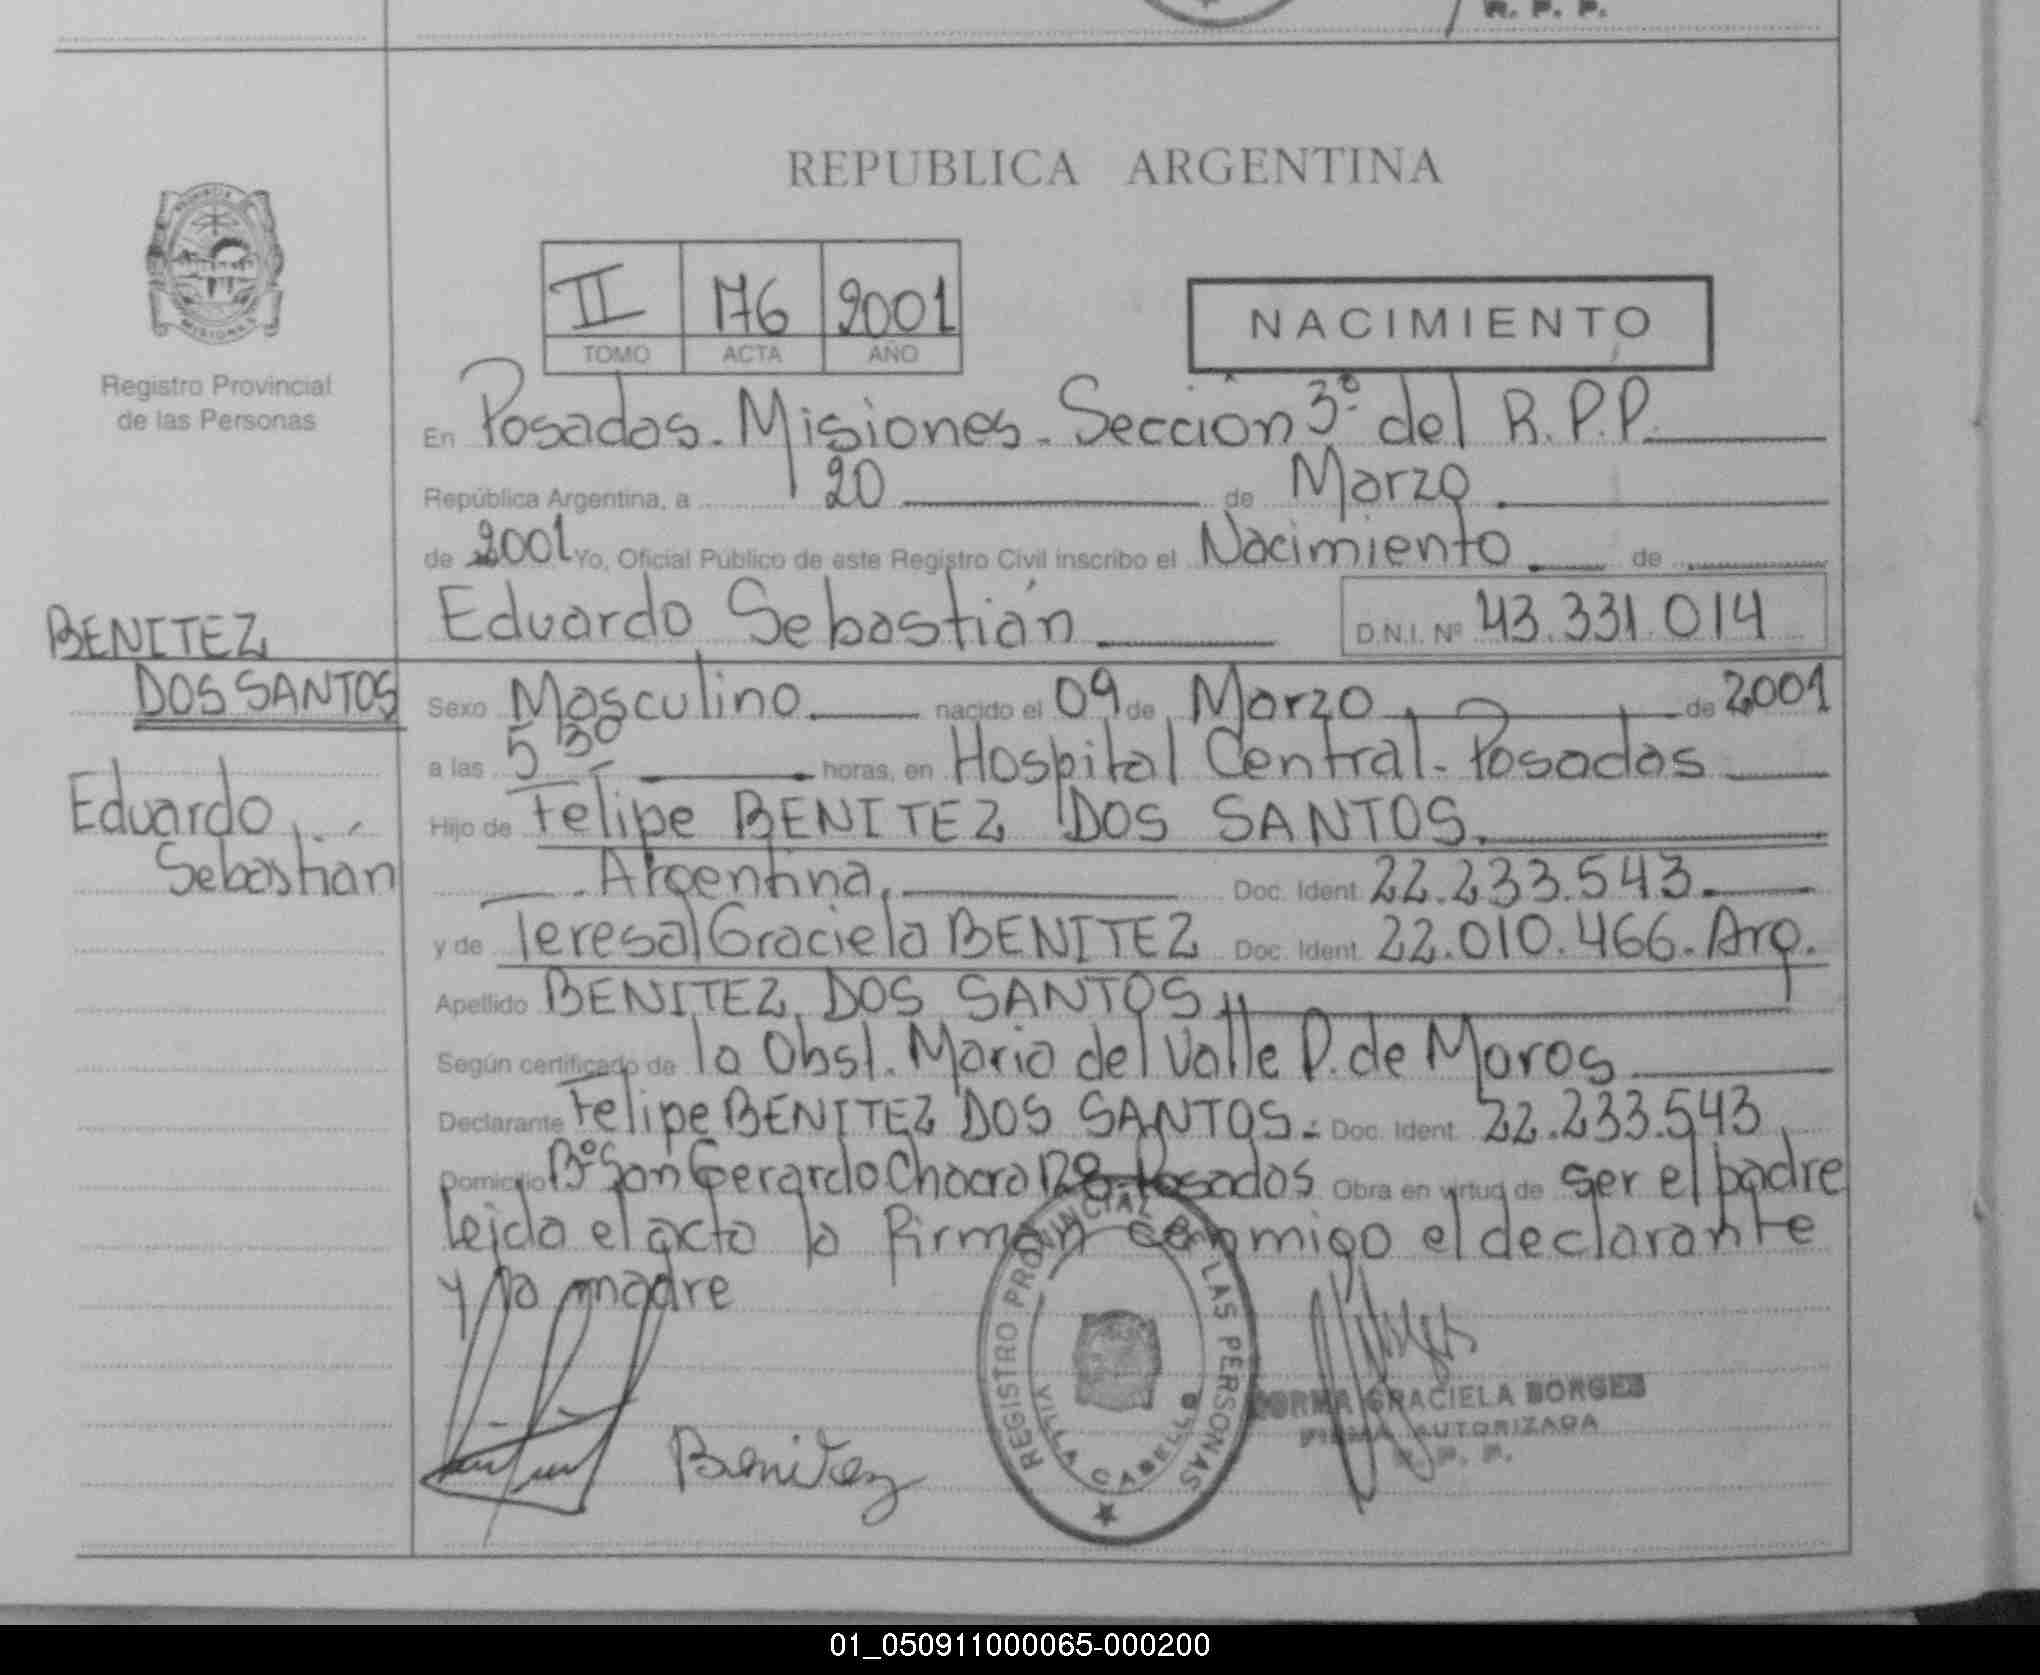 R. P. P.
REPUBLICA ARGENTINA
PROVINCIA
MISIONES
Registro Provincial
de las Personas
II 176 2001
TOMO ACTA AÑO
NACIMIENTO
En Posadas - Misiones - Sección 3º del R.P.P.
República Argentina, a 20 de Marzo
de 2001 Yo, Oficial Público de este Registro Civil inscribo el Nacimiento de
Eduardo Sebastián D.N.I. Nº 43.331.014
BENITEZ
DOS SANTOS
Eduardo
Sebastián
Sexo Masculino nacido el 09 de Marzo de 2001
a las 5 30 horas, en Hospital Central - Posadas
Hijo de Felipe BENITEZ DOS SANTOS.
Argentina, Doc. Ident. 22.233.543.
y de Teresa Graciela BENITEZ Doc. Ident. 22.010.466. Arg.
Apellido BENITEZ DOS SANTOS
Según certificado de la Obst. Maria del Valle D. de Moros
Declarante Felipe BENITEZ DOS SANTOS. Doc. Ident. 22.233.543
Domicilio Bº San Gerardo Chacra 128 - Posadas Obra en virtud de ser el padre
leido el acto lo firman conmigo el declarante
y la madre
Benitez
REGISTRO PROVINCIAL DE LAS PERSONAS
VILLA CABELLO
NORMA GRACIELA BORGES
FIRMA AUTORIZADA
R. P. P.
01_050911000065-000200